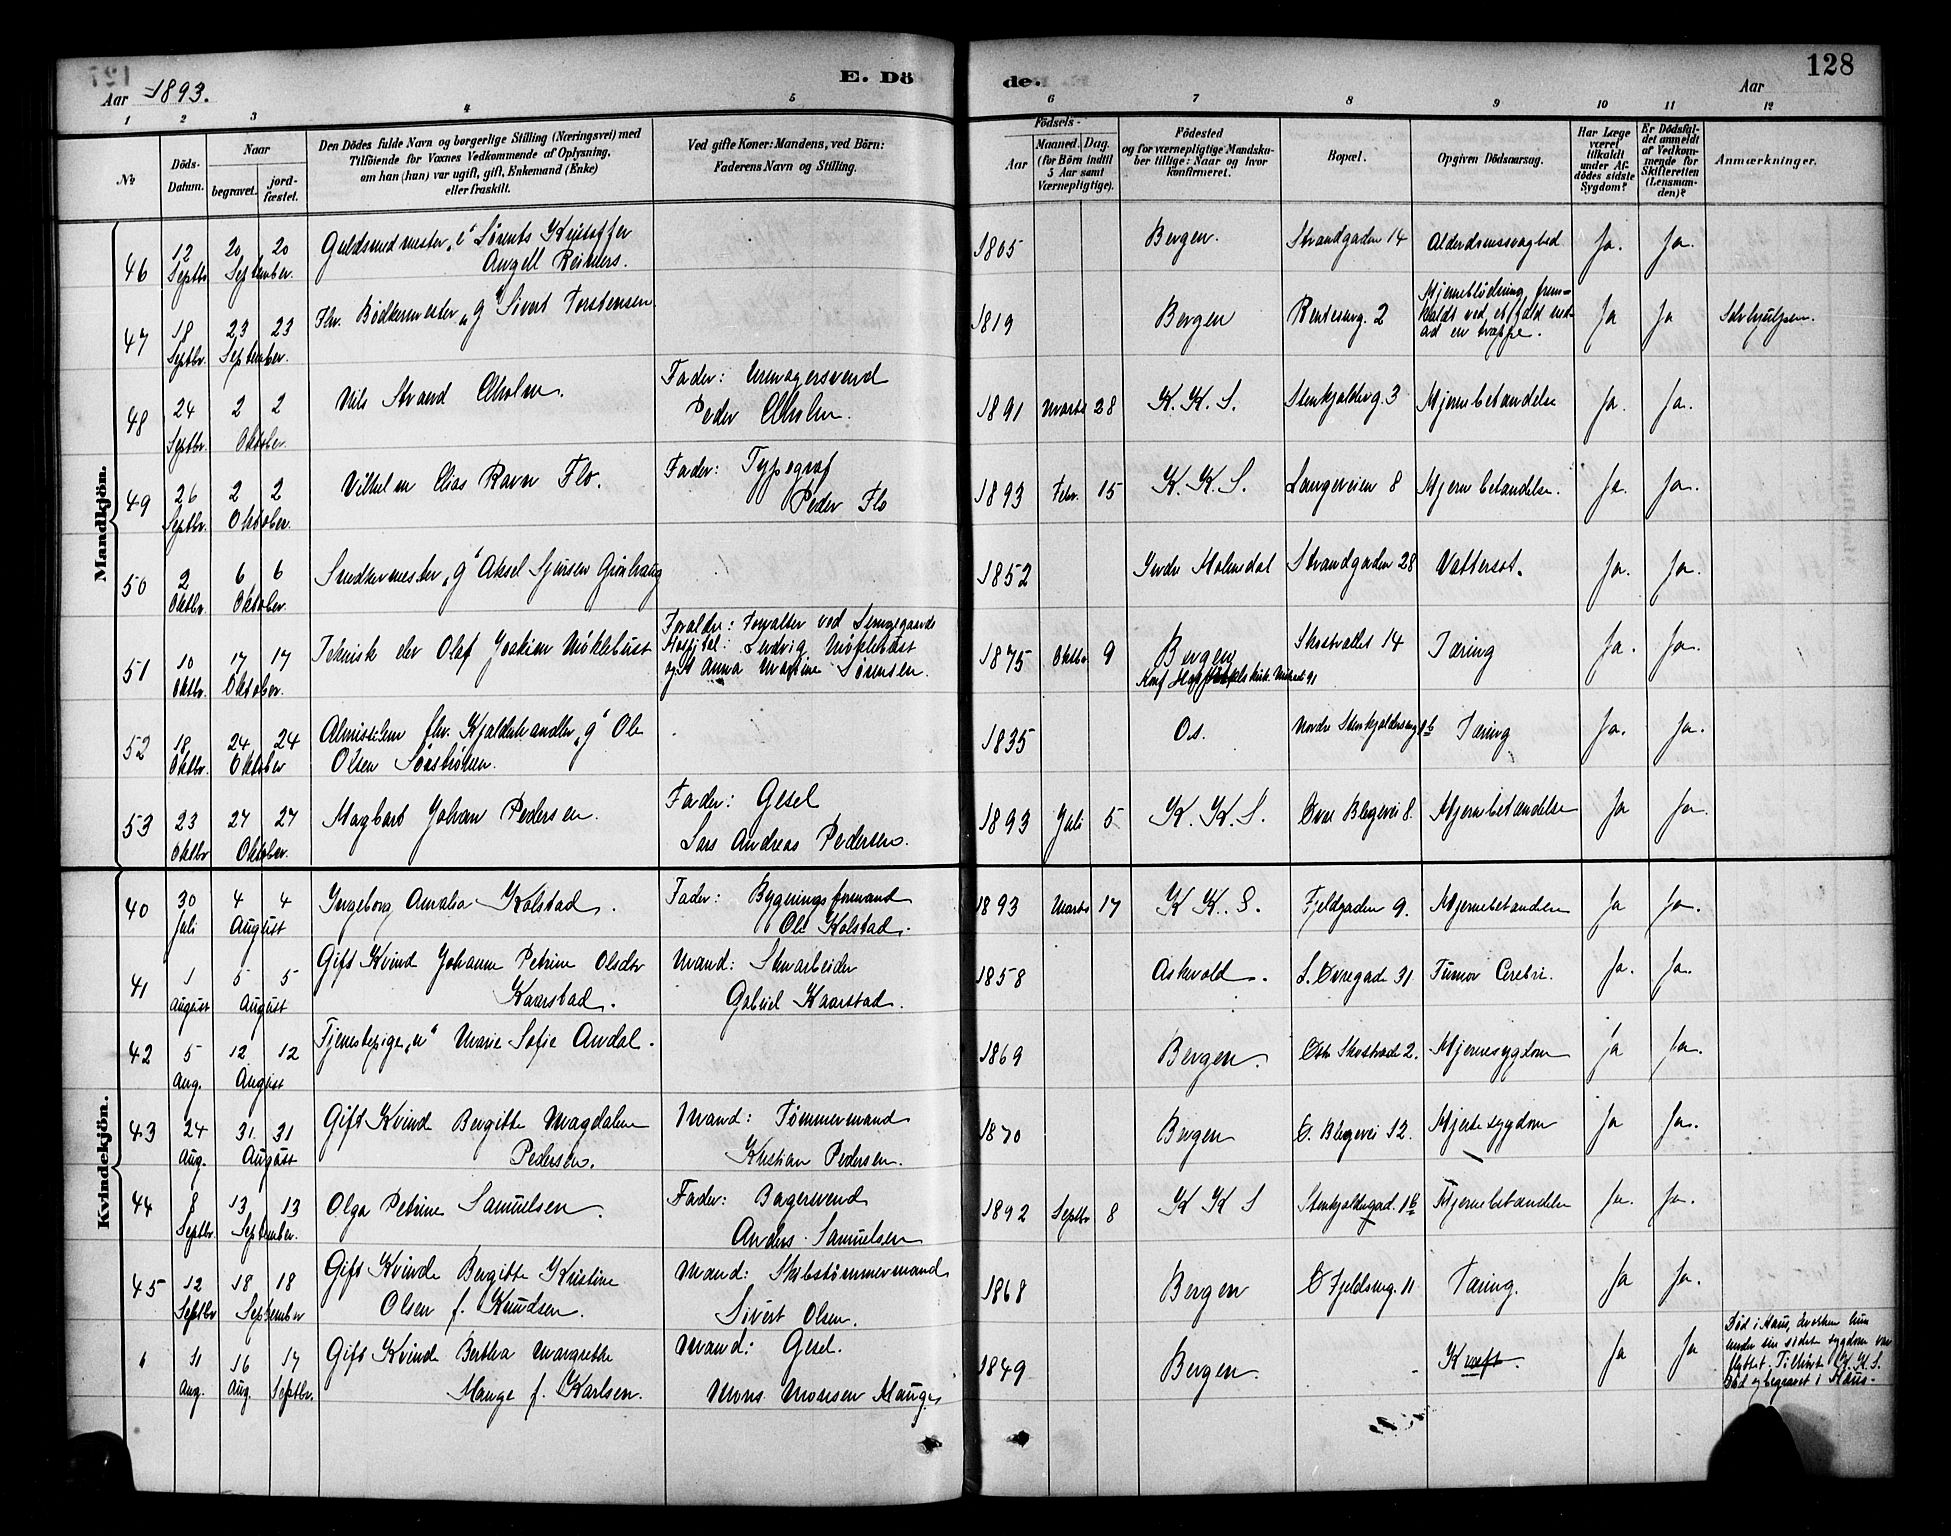 128
Aar 1893.
E. Dö
de.
Aar
1 2 3 4 5 6 7 8 9 10 11 12
No
Döds-Datum.
Naar
begravet.
jord-fæstet.
Den Dödes fulde Navn og borgerlige Stilling (Næringsvei) med
Tilföiende for Voxnes Vedkommende af Oplysning,
om han (hun) var ugift, gift, Enkemand (Enke)
eller fraskilt.
Ved gifte Koner: Mandens, ved Börn:
Faderens Navn og Stilling.
Födsels-
Aar
Maaned. Dag.
(for Börn indtil
5 Aar samt
Værnepligtige).
Födested
og for værnepligtige Mandska-
ber tillige: Naar og hvor
konfirmeret.
Bopæl.
Opgiven Dödsaarsag.
Har Læge
været
tilkaldt
under Af-
dödes sidste
Sygdom?
Er Dödsfal-
det anmeldt
af Vedkom-
mende for
Skifteretten
(Lensman-
den)?
Anmærkninger.
Mandkjön.
46 12 Septbr 20 20 September. Guldsmedmester "e" Sørents Kristoffer
Angell Reimers. 1805 Bergen. Strandgaden 14 Alderdomssvaghed Ja. Ja.
47 18 Septbr. 23 23 September. Fhv. Bødkermester "g" Sivert Torstensen. 1819 Bergen 2 Hjerneblødning frem-
kaldt ved et fald ned
ad en trappe. Ja Ja Selvhjulpen.
48 24 Septbr. 2 2 Oktober Nils Strand Alholm. Fader: Urmagersvend
Peder Alholm. 1891 Marts 28 K. K. S. Stenkjelderg. 3 Hjernebetændelse Ja. Ja.
49 26 Septbr. 2 2 Oktober. Vilhelm Elias Ravn Flo. Fader: Typograf
Peder Flo 1893 Febr. 15 K. K. S. Langeveien 8 Hjernebetændelse. Ja. Ja.
50 2 Oktbr. 6 6 Oktober. Snedkermester "g" Aksel Sjursen Grønhaug 1852 Indre Holmedal Strandgaden 28 Vattersot. Ja. Ja.
51 10 Oktbr. 17 17 Oktober. Teknisk elev Olaf Joakim Møklebust Forældre: Forvalter ved Lungegaards
Hospital: Ludvig Møklebust
og Anna Martine Sørensen. 1875 Oktbr 9 Bergen
Konf. 91 14 Tæring Ja. Ja.
52 18 Oktbr. 24 24 Oktober Almisselem fhv. Kjældehandler "g" Ole
Olsen 1835 Os. Nordre Tæring Ja. Ja.
53 23 Oktbr 27 27 Oktober. Magbart Johan Pedersen. Fader: Gesel
Lars Andreas Pedersen. 1893 Juli 5 K. K. S. Øvre Blegevei 8. Hjernebetændelse Ja Ja.
Kvindekjön.
40 30 Juli 4 4 August Ingeborg Amalia Kolstad. Fader: Bygningsformand
Ole Kolstad. 1893 Marts 17 K. K. S. Fjeldgaden 9. Hjernebetændelse Ja Ja.
41 1 August 5 5 August Gift Kvinde Johanne Petrine Olsdtr
Kaarstad. Mand: Stenarbeider
Gabriel Kaarstad. 1858 Askvold. S. Øvregad 31 Tumor Cerebri. Ja. Ja.
42 5 Aug. 12 12 August Tjenestepige "u" Marie Sofie Andal. 1869 Bergen. 2. Hjernesygdom Ja Ja.
43 24 Aug. 31. 31 August Gift Kvinde Bergitte Magdalene
Pedersen. Mand: Tømmermand
Kristian Pedersen. 1870 Bergen Ø. Blegevei 12. Hjertesygdom Ja Ja.
44 8 Septbr. 13 13 September. Olga Petrine Samuelsen. Fader: Bagersvend
Anders Samuelsen 1892 Septbr 8 K K S Stenkjeldergad. 1b Hjernebetændelse Ja. Ja.
45 12 Septbr 18 18 September Gift Kvinde Bergitte Kristine
Olsen f. Knudsen. Mand: Skibstømmermand
Sivert Olsen. 1868 Bergen Ø Fjeldsmg. 11 Tæring. Ja Ja.
11 Aug. 16 Aug. 17 Septbr. Gift Kvinde Berthea Margrethe
Hauge f. Karlsen. Mand: Gesel.
Mons Monsen Hauge 1849 Bergen. - Kræft. Ja Ja Død i Haus, hvorhen hun
under sin sidste sygdom var
flyttet. Tilhørte K. K. S.
Død og begravet i Haus.